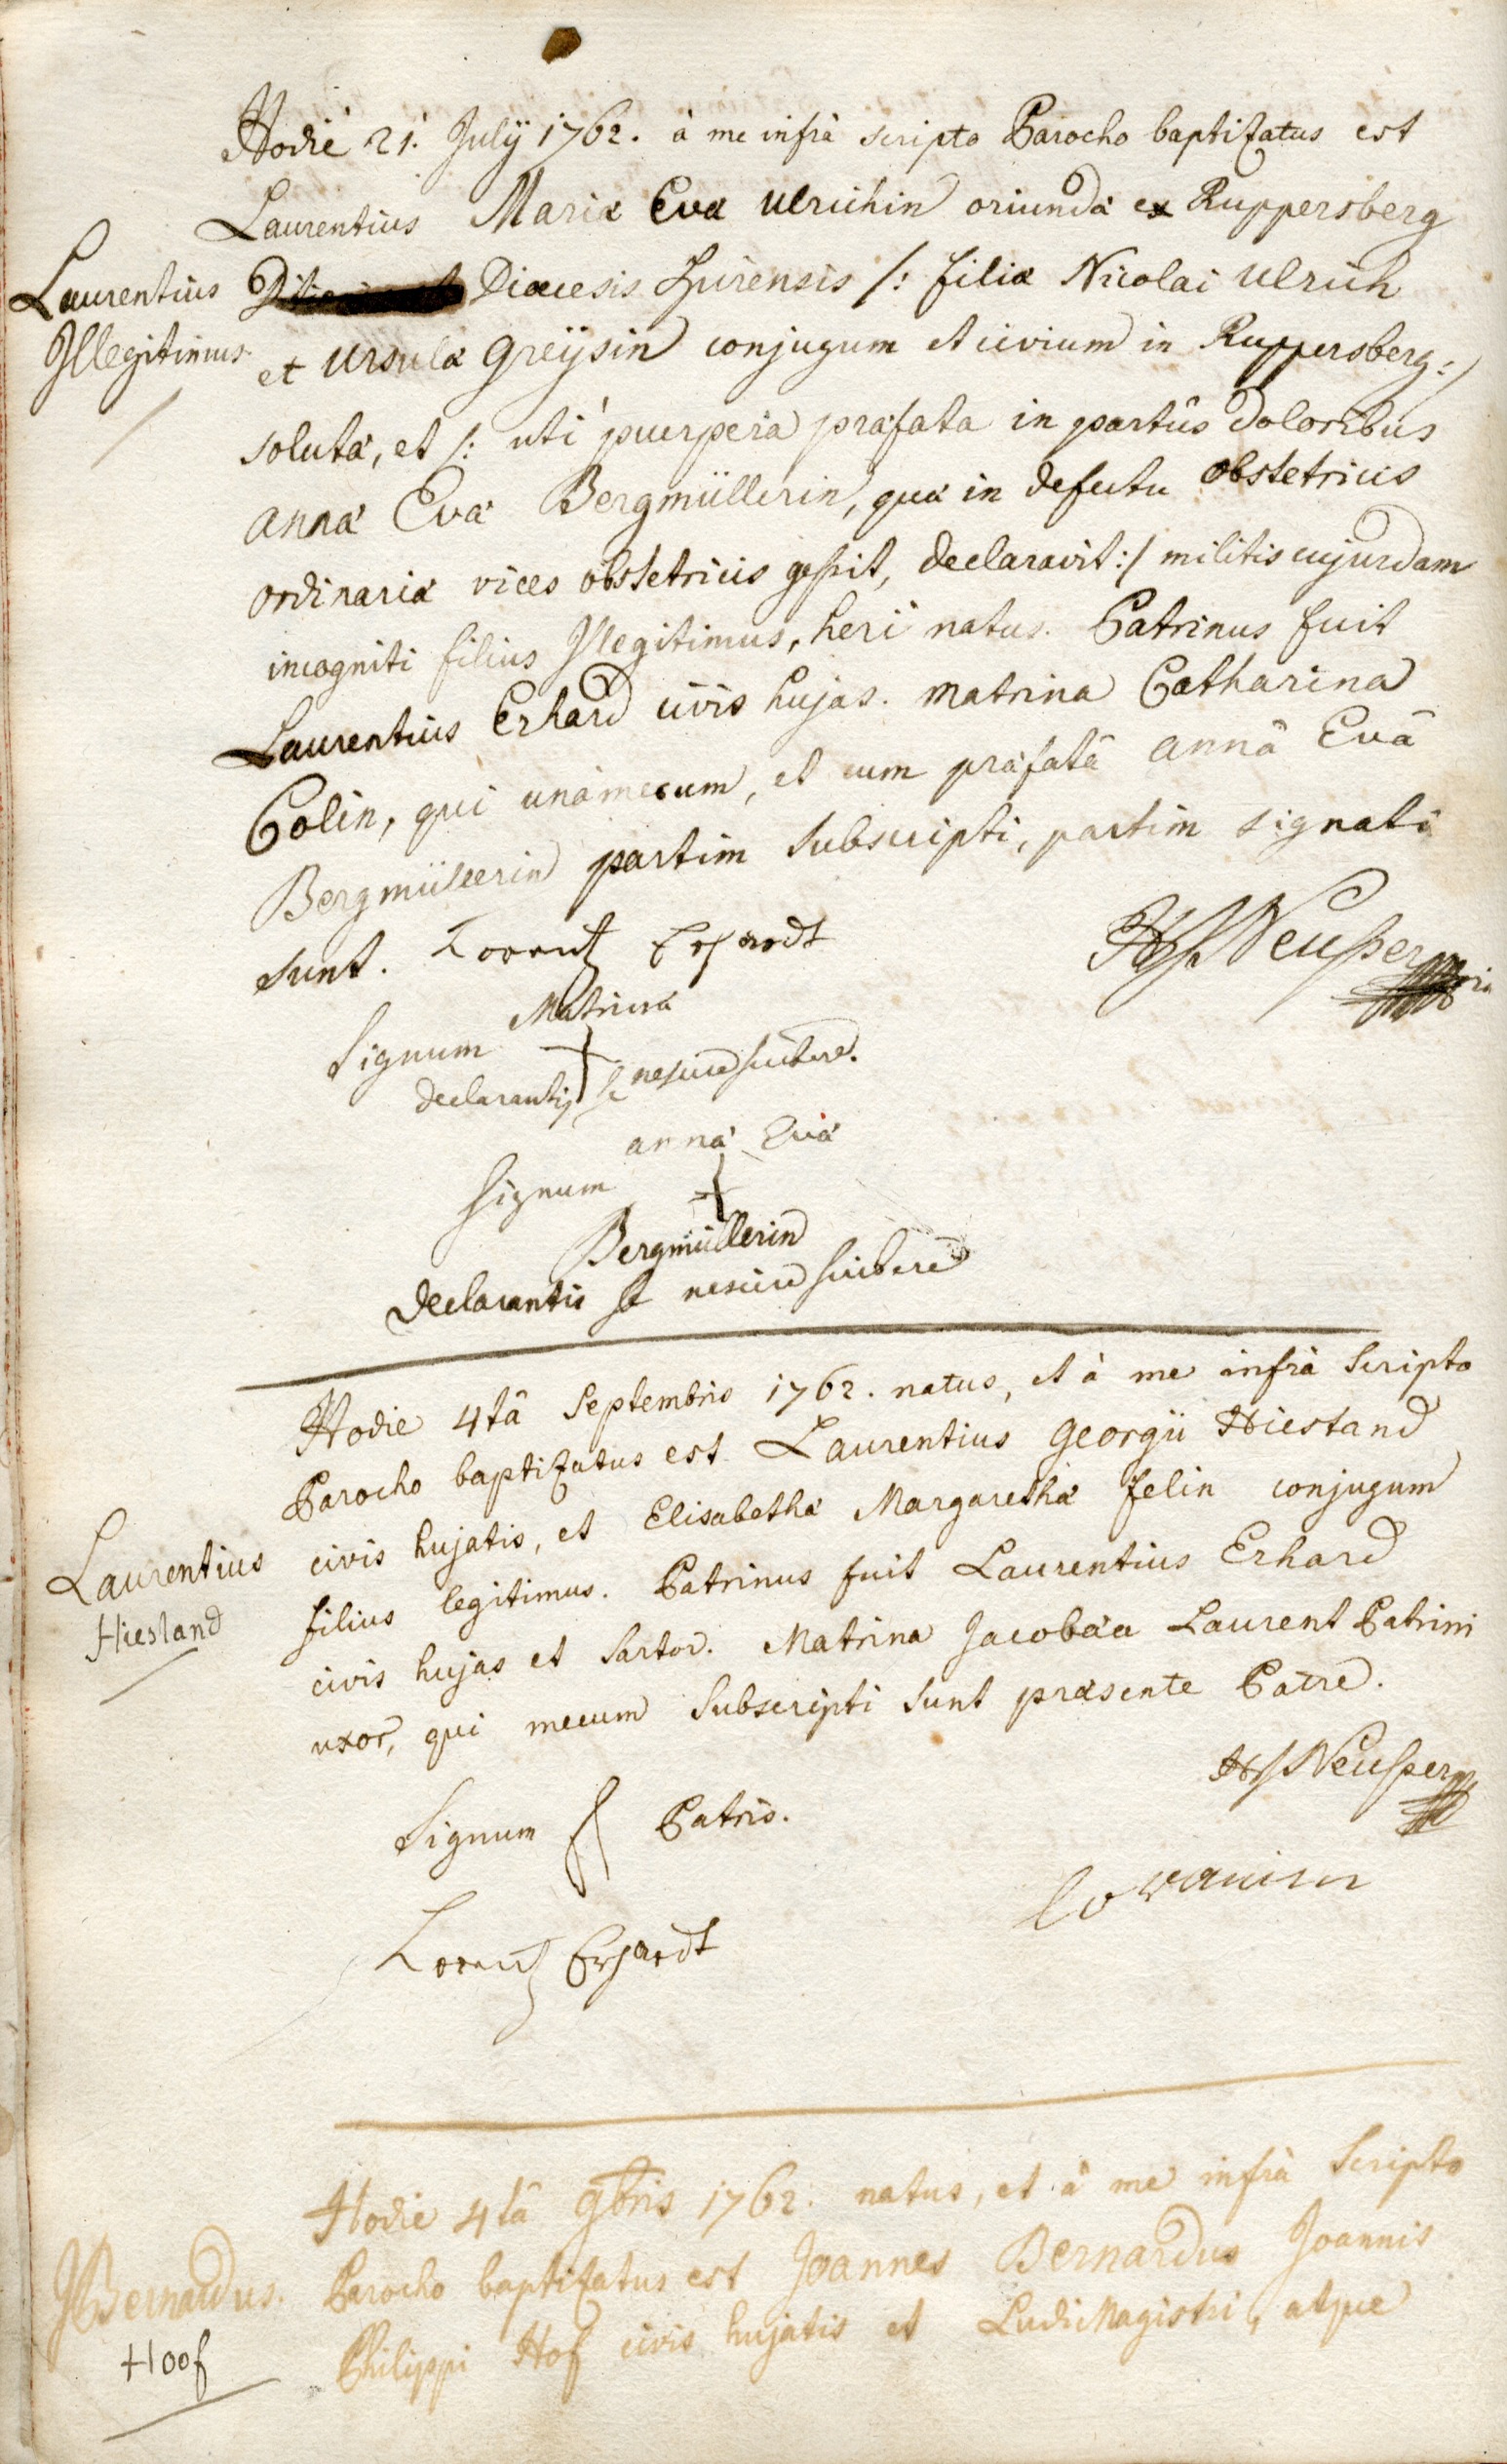 Hodie 21. Julÿ 1762. à me infrà scripto Parocho baptizatus est
Laurentius Mariæ Evæ Ulrichin oriundæ ex Ruppersberg
Laurentius
Illegitimus.
Diœcesis Spirensis /: filiæ Nicolai Ulrich
et Ursulæ Greÿsin conjugum et civium in Ruppersberg :/
solutæ, et /: uti puerpera præfata in partûs doloribus
annæ Evæ Bergmüllerin, quæ in defectu obstetricis
ordinariæ vices obstetricis gessit, declaravit :/ militis cujusdam
incogniti filius Illegitimus, heri natus. Patrinus fuit
Laurentius Erhard civis hujas. matrina Catharina
Colin, qui unà mecum, et cum præfatâ annâ Evâ
Bergmüllerin partim subscripti, partim signati
sunt. Lorentz Erhardt
HJNeusser
Matrinæ
Signum +
declarantis se nescire scribere.
annæ Evæ
Signum +
Bergmüllerin
Declarantis se nescire scribere
Hodie 4tâ Septembris 1762. natus, et à me infrà scripto
Parocho baptizatus est Laurentius Georgii Hiestand
Laurentius
Hiestand
civis hujatis, et Elisabethæ Margarethæ felin conjugum
filius legitimus. Patrinus fuit Laurentius Erhard
civis hujas et Sartor. Matrina Jacobæa Laurent Patrini
uxor, qui mecum subscripti sunt præsente Patre.
HJNeusser
Signum Patris.
Lorentz Erhardt
Hodie 4tâ 9bris 1762. natus, et à me infrà scripto
JBernardus.
Hoof
Parocho baptizatus est Joannes Bernardus Joannis
Philippi Hof civis hujatis et Ludimagistri, atque